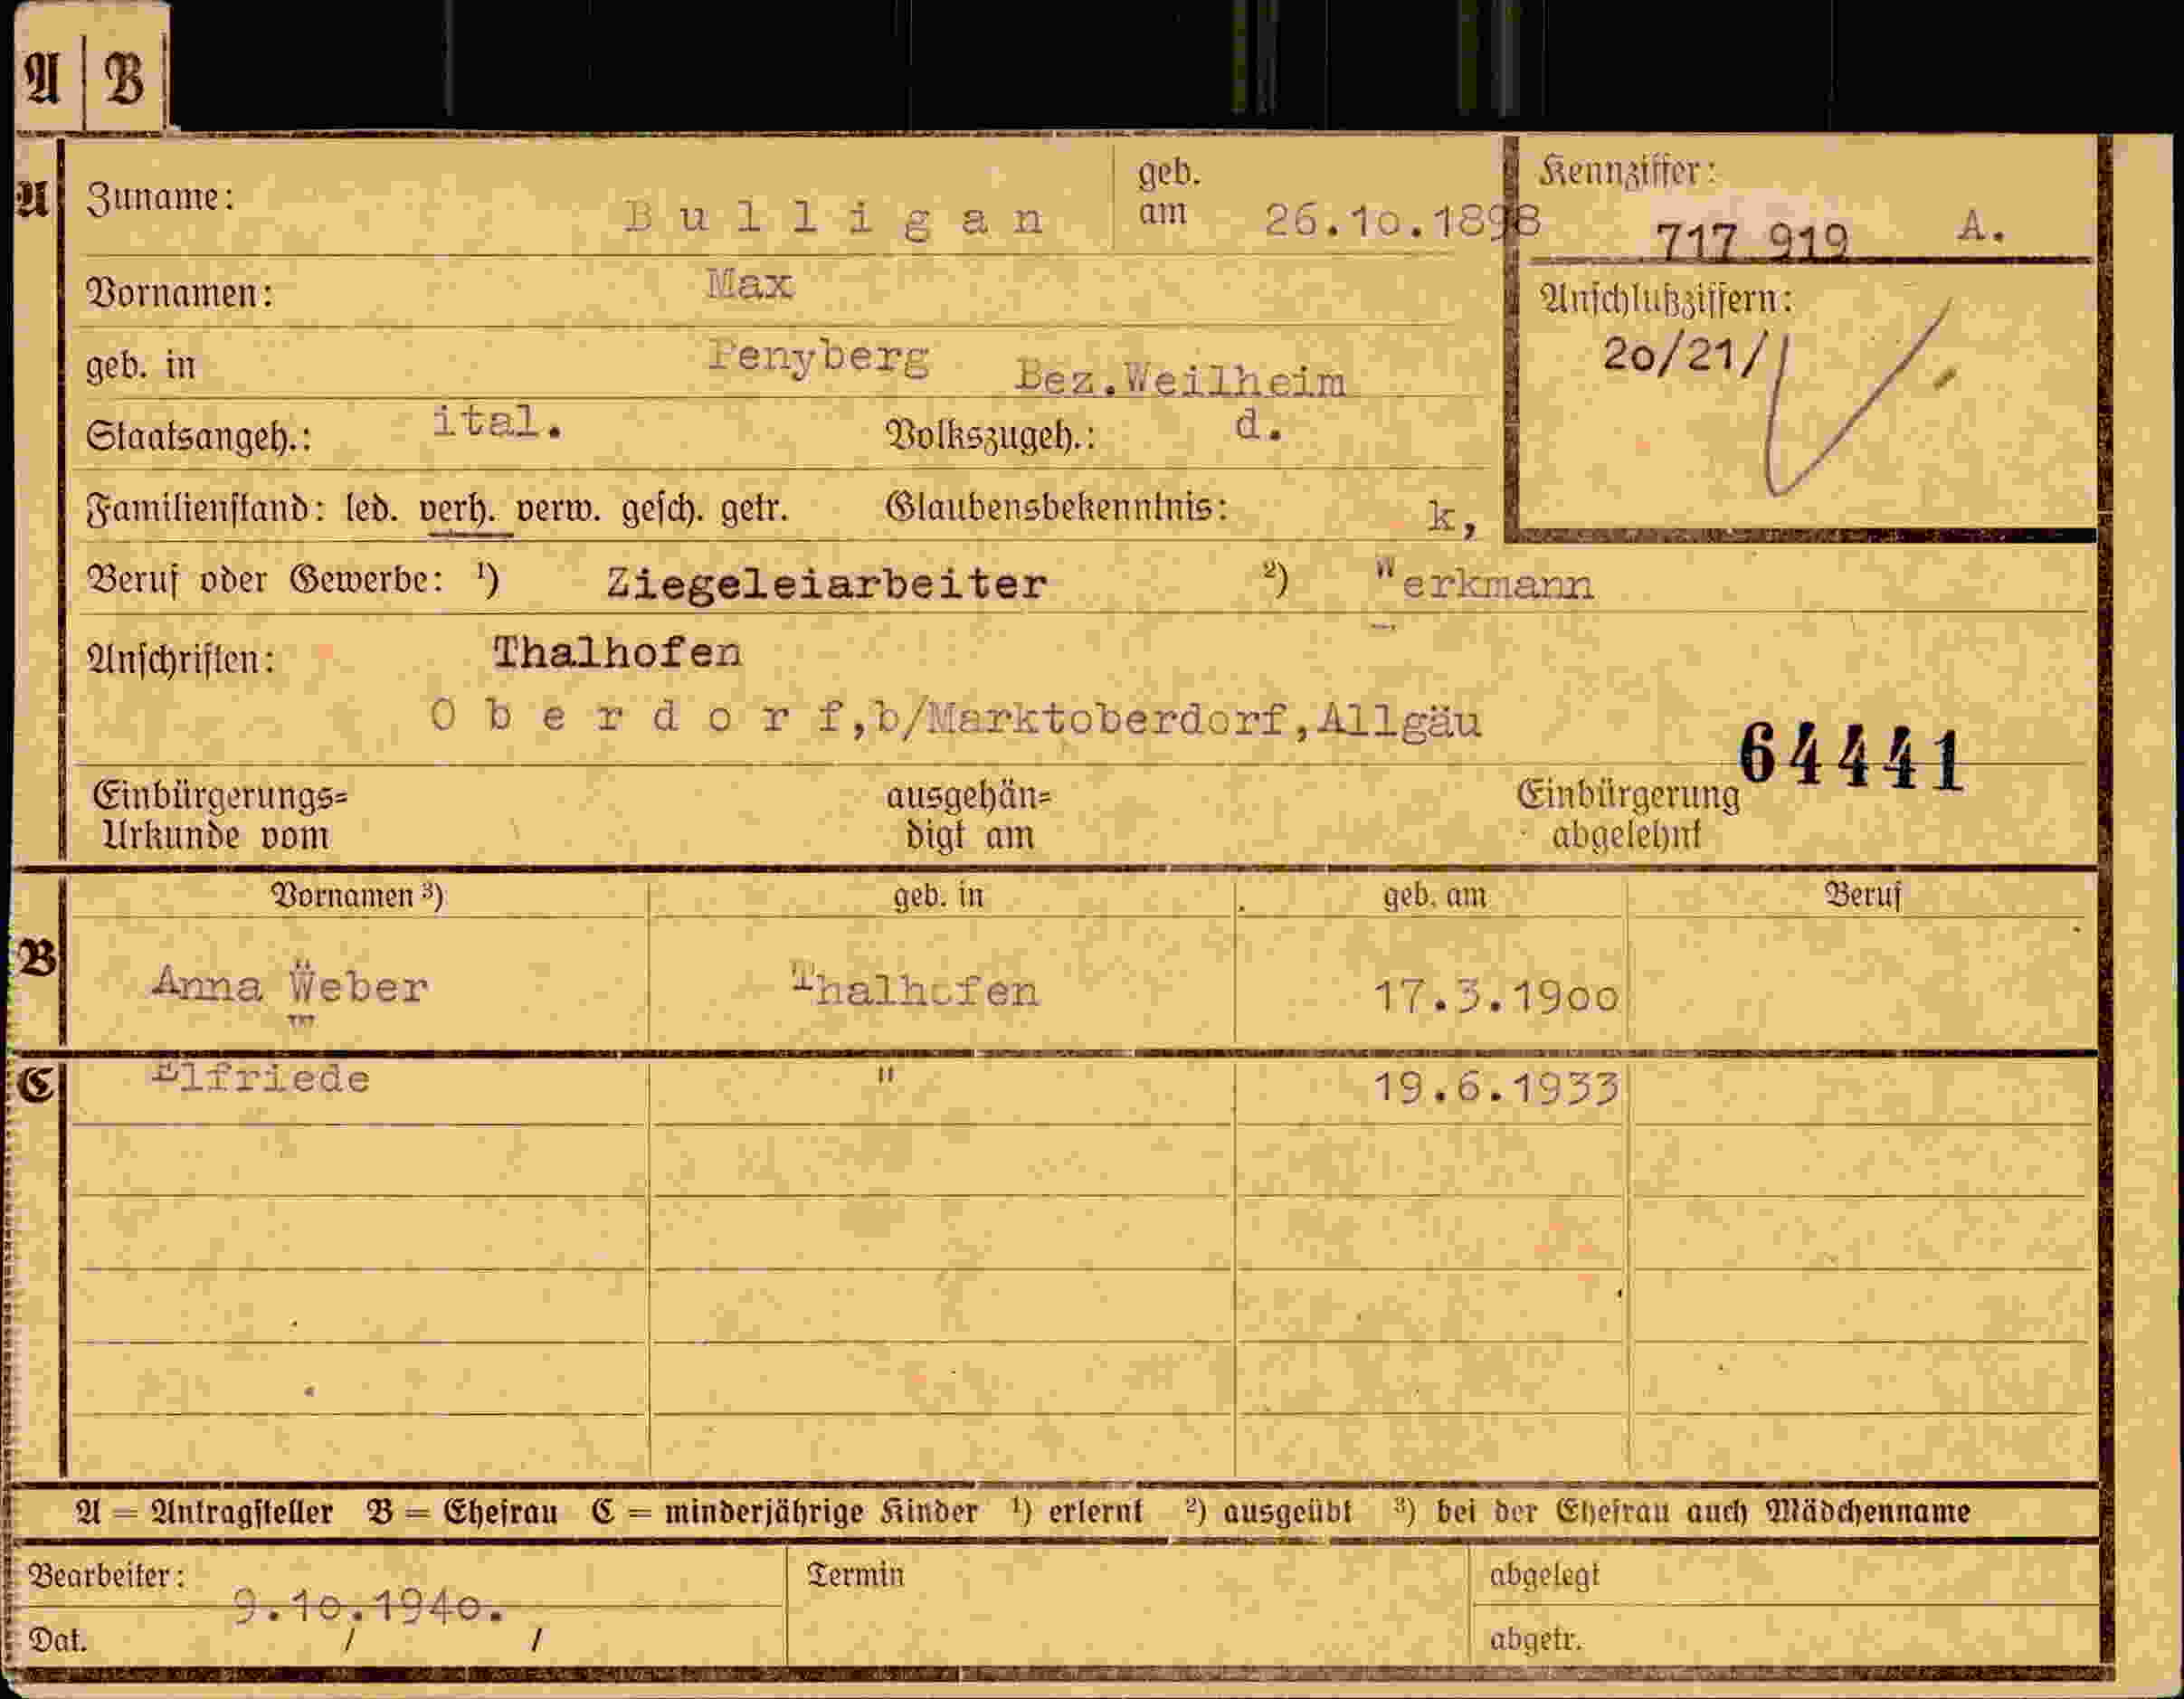 A | B
A
Zuname: Bulligan geb. am 26.10.1898
Kennziffer: 717 919 A.
Vornamen: Max
Anschlußziffern: 20/21/
geb. in Penyberg Bez.Weilheim
Staatsangeh.: ital. Volkszugeh.: d.
Familienstand: led. verh. verw. gesch. getr. Glaubensbekenntnis: k,
Beruf oder Gewerbe: 1) Ziegeleiarbeiter 2) Werkmann
Anschriften: Thalhofen
Oberdorf,b/Marktoberdorf,Allgäu
64441
Einbürgerungs= ausgehän= Einbürgerung
Urkunde vom digt am abgelehnt
Vornamen 3) geb. in geb. am Beruf
B
Anna Weber Thalhofen 17.3.1900
C
Elfriede " 19.6.1933
A = Antragsteller B = Ehefrau C = minderjährige Kinder 1) erlernt 2) ausgeübt 3) bei der Ehefrau auch Mädchenname
Bearbeiter: Termin abgelegt
9.10.1940.
Dat. abgetr.